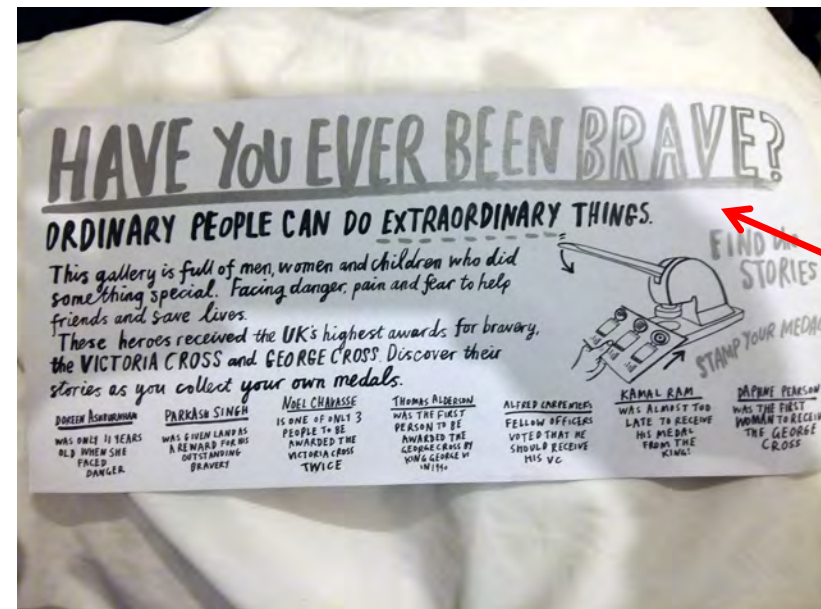 HAVE YOU EVER BEEN BRAVE?
ORDINARY PEOPLE CAN DO EXTRAORDINARY THINGS.
This gallery is full of men, women and children who did
something special. Facing danger, pain and fear to help
friends and save lives.
These heroes received the UK's highest awards for bravery,
the VICTORIA CROSS and GEORGE CROSS. Discover their
stories as you collect your own medals.
FIND the
STORIES
STAMP YOUR MEDAL
DOREEN ASHBURNHAM
WAS ONLY 11 YEARS
OLD WHEN SHE
FACED
DANGER
PARKASH SINGH
WAS GIVEN LAND AS
A REWARD FOR HIS
OUTSTANDING
BRAVERY
NOEL CHAVASSE
IS ONE OF ONLY 3
PEOPLE TO BE
AWARDED THE
VICTORIA CROSS
TWICE
THOMAS ALDERSON
WAS THE FIRST
PERSON TO BE
AWARDED THE
GEORGE CROSS BY
KING GEORGE VI
IN 1940
ALFRED CARPENTER'S
FELLOW OFFICERS
VOTED THAT HE
SHOULD RECEIVE
HIS VC
KAMAL RAM
WAS ALMOST TOO
LATE TO RECEIVE
HIS MEDAL
FROM THE
KING!
DAPHNE PEARSON
WAS THE FIRST
WOMAN TO RECEIVE
THE GEORGE
CROSS